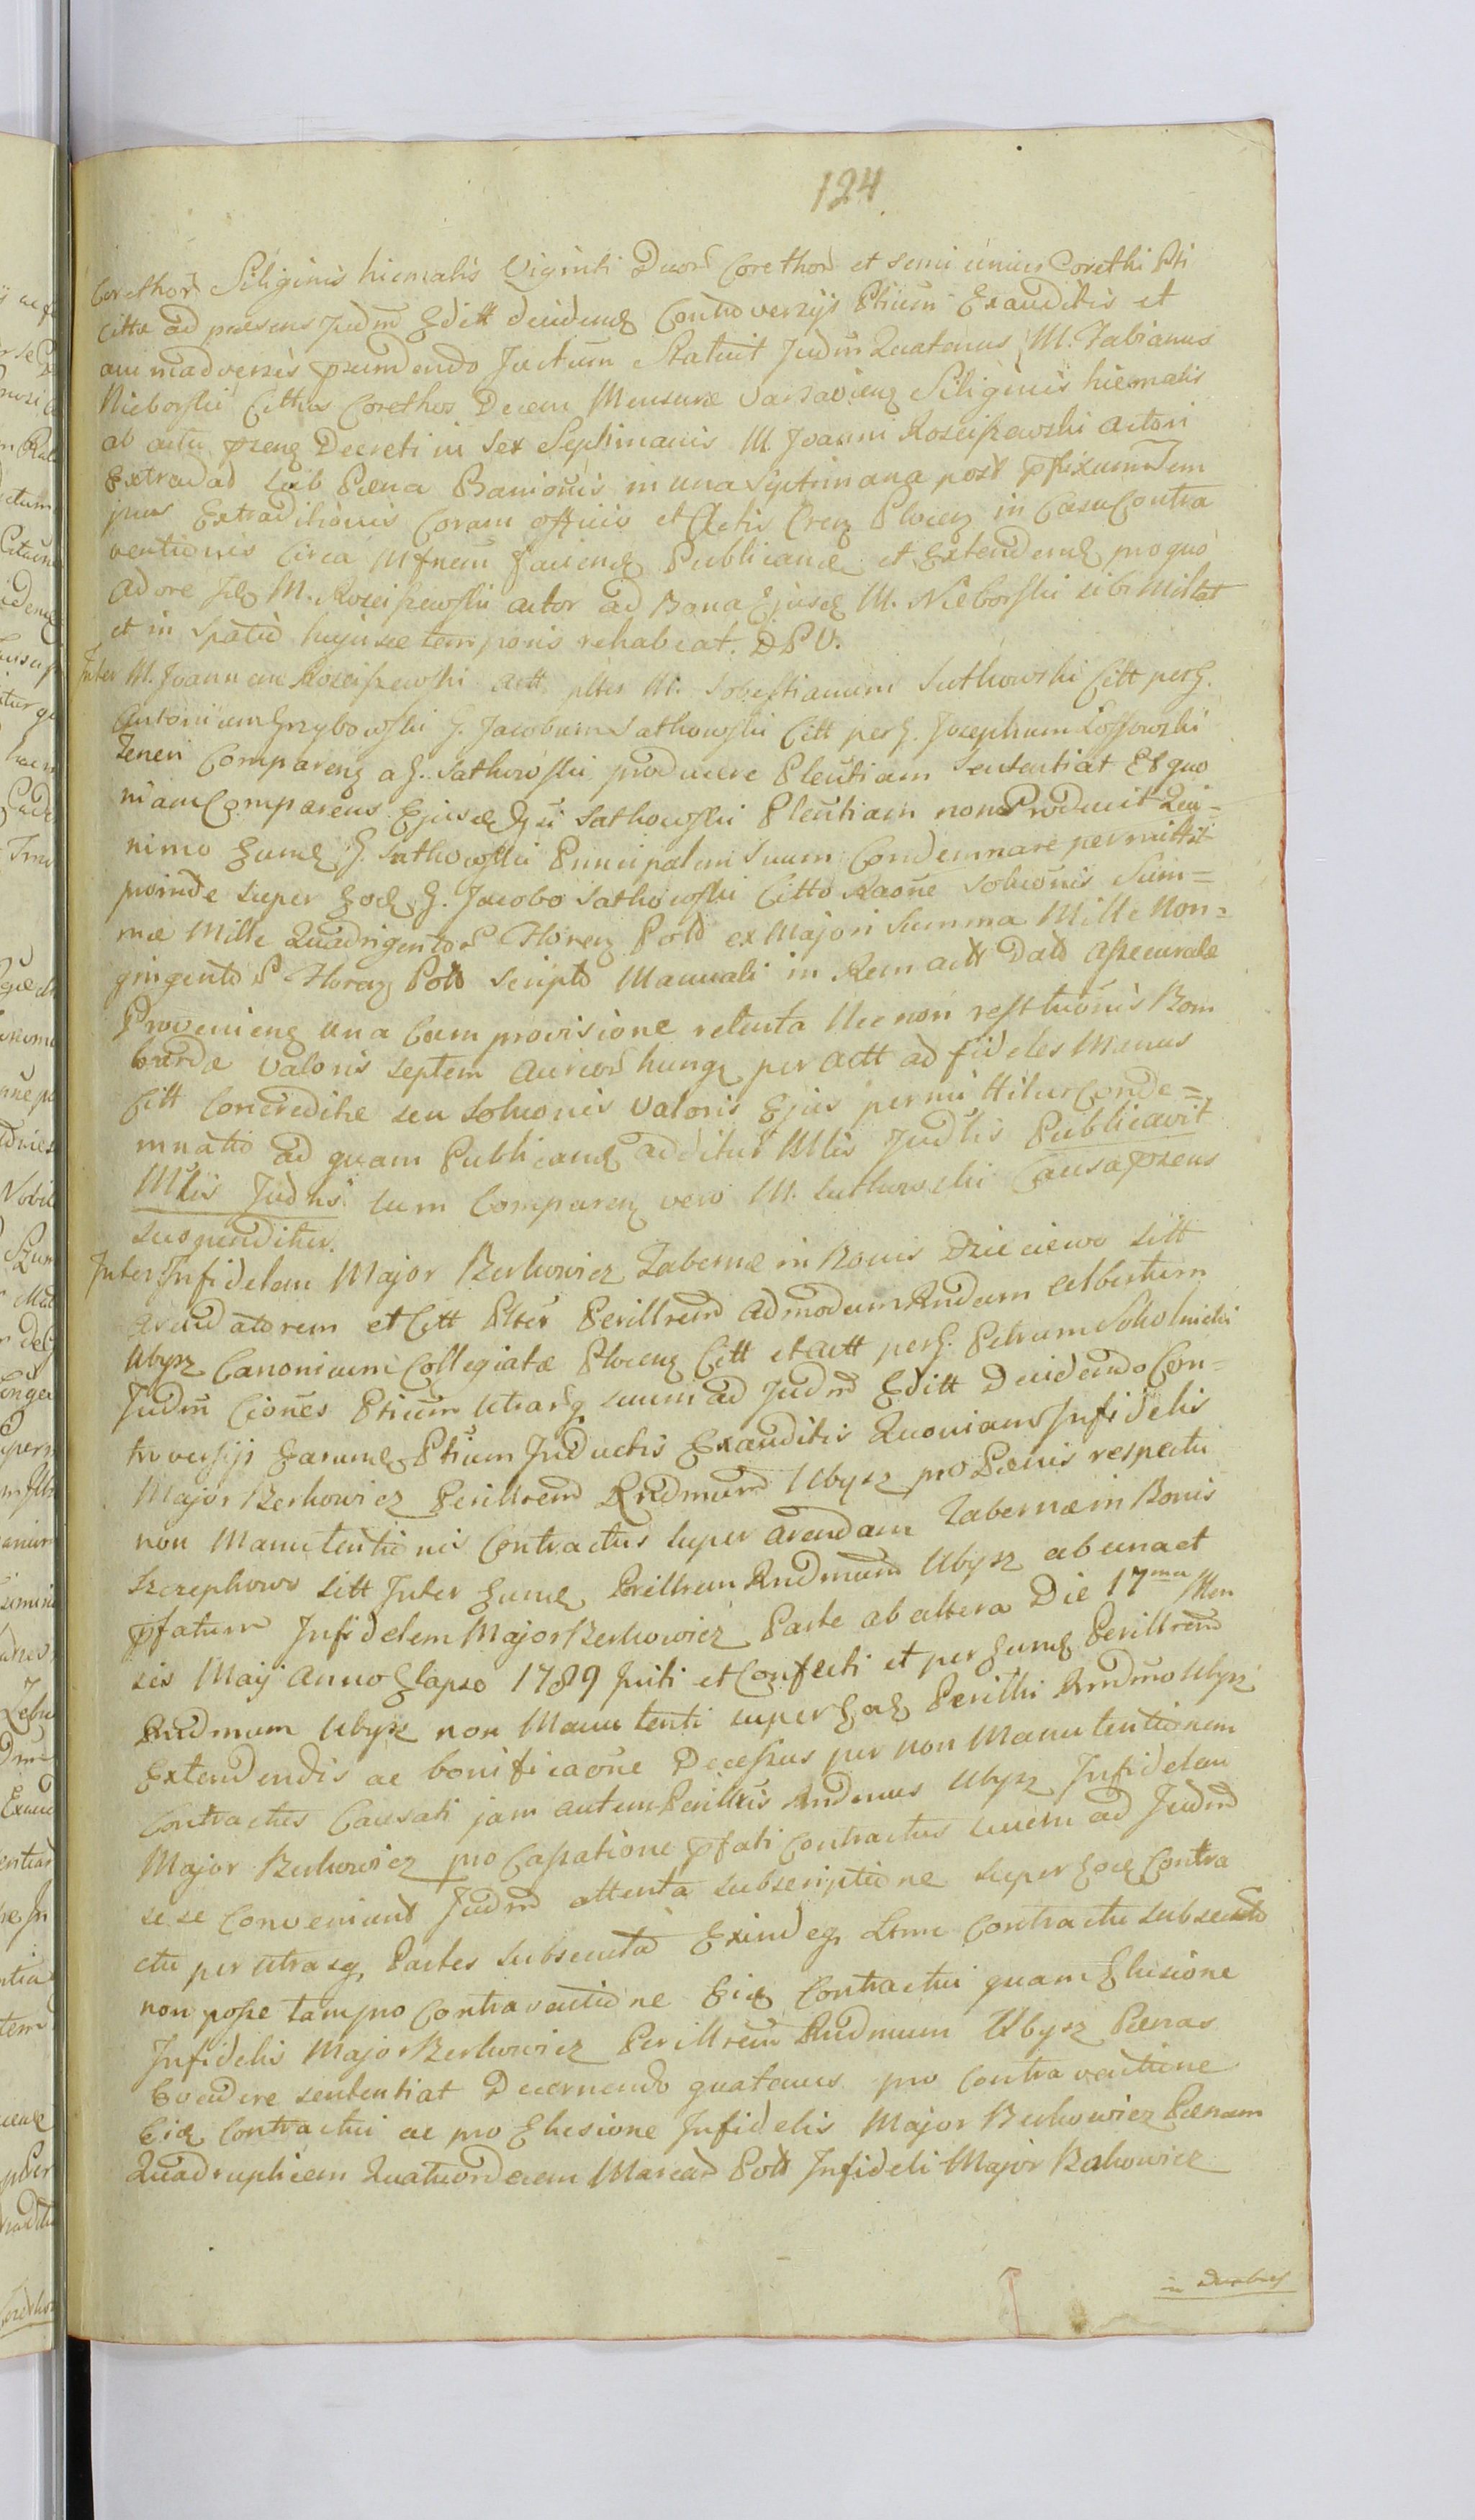 124
Corethor Siliginis hiemalis Viginti Duor Corethor et semi unius Corethi Pti
citto ad praesens Judm Editt decidend Controversijs Ptium Exauditis et
animadversis praemdendo Juctum Statuit Judm Quatenus M. Fabianus
Nieborski Cittus Corethos Decem Mensurae Varsavien Siliginis hiemalis
ab actu praesen Decreti in Sex Septimanis M. Joanni Kosciszewski actori
Extradat sub Paena Banionis in una septimana post pfixum Tem
pus Extraditionis Coram officio et Actis Cren Plocen in Casu Contra
ventionis Circa Mfnem faciend Publicand et Extendend pro quo
adore M. Kosciszewski actor ad Bona Ejusd M. Nieborski sibi Mittat
et in spatio hujusce temporis rehabeat. DPV.
Inter M. Joannem Kosciszewski actt plter M. Sobestianum Suthowski Citt per G.
Antonium Grzybowski G. Jacobum Sathowski Citt per G. Josephum Lossowski
Teneri Comparen a G. Sathowski producere Pleutiam sententiat Et quo
niam Comparens Ejusd Gsi Sathowski Pleutiam non Producit Qui=
nimo Eumd G. Sathowski Principalem Suum Condemnare permittit
proinde super Eod G. Jacobo Sathowski Citto Raone Soluonis Sum=
mae Mille Quadrigentor Floren Pold ex Majori Summa Mille Non=
gingentor Floren Pold Scripto Manuali in Rem actt Dato Assecuratae
Provenien una Cum provisione retenta Nec non restituonis Bom
bardae valoris septem Aureor hung per actt ad fideles Manus
Citt Concreditae seu Soluonis Valoris Ejus permittitur Conde=
mnatio ad quam Publicand additur Mlis Judlis Publicavit
Mlis Judlis. cum Comparen vero M. Suthowski Causa praesens
suspenditur.
Inter Infidelem Major Berkowicz Tabernae in Bonis Dzieciewo sitt
arendatorem et Citt Plter Perillrem admodum Rndum Albertum
Ubysz Canonicum Collegiatae Plocen Citt et actt per G. Petrum Sokolnicki
Judm Ciones Ptium utrasq suum ad Judm Editt Decidendo Con=
troversijs Earumd Ptium Inductis Exauditis Quoniam Infidelis
Major Berkowicz Perillrem Rndmum Ubysz pro Paenis respectu
non Manutentionis Contractus super arendam Tabernae in Bonis
Szczephowo sitt Inter Eumd Perillrem Rndmum Ubysz ab una et
pfatum Infidelem Major Berkowicz Parte ab altera Die 17ma Men
sis Maij anno Elapso 1789 Initi et Confecti et per Eumd Perillrem
Rndmum Ubysz non Manutenti super Eod Perilli Rndmo Ubysz
Extendendis ac bonificaone Decessus per non Manutentionem
Contractus Causati jam autem Perillris Rndmus Ubysz Infidelem
Major Berkowicz pro Cassatione pfati Contractus suum ad Judm
sese Conveniunt Judm attenta subscriptione super Eod Contra
ctu per utrasq Partes subsecuta Exindeq Stme Contractu subsecuto
non posse tam pro Contraventione Eid Contractui quam Elusione
Infidelis Major Berkowicz Perillrem Rndmum Ubysz Paenas
Evadere sententiat Decernendo quatenus pro Contraventione
Eid Contractui ac pro Elusione Infidelis Major Berkowicz Paenam
Quadruplicem Quatuordecem Marcar Pold Infideli Major Berkowicz
in Duabus